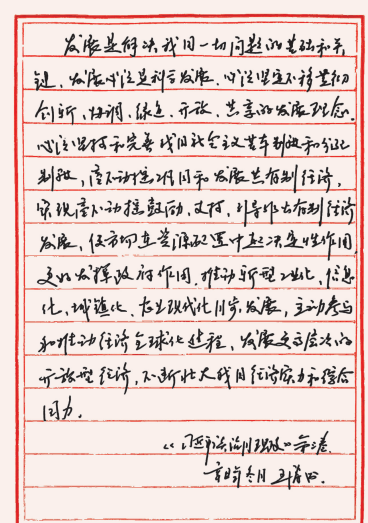 发展是解决我国一切问题的基础和关
键，发展必须是科学发展，必须坚定不移贯彻
创新、协调、绿色、开放、共享的发展理念。
必须坚持和完善我国社会主义基本经济制度和分配
制度，毫不动摇巩固和发展公有制经济，
毫不动摇鼓励、支持、引导非公有制经济
发展，使市场在资源配置中起决定性作用，
更好发挥政府作用，推动新型工业化、信息
化、城镇化、农业现代化同步发展，主动参与
和推动经济全球化进程，发展更高层次的
开放型经济，不断壮大我国经济实力和综合
国力。